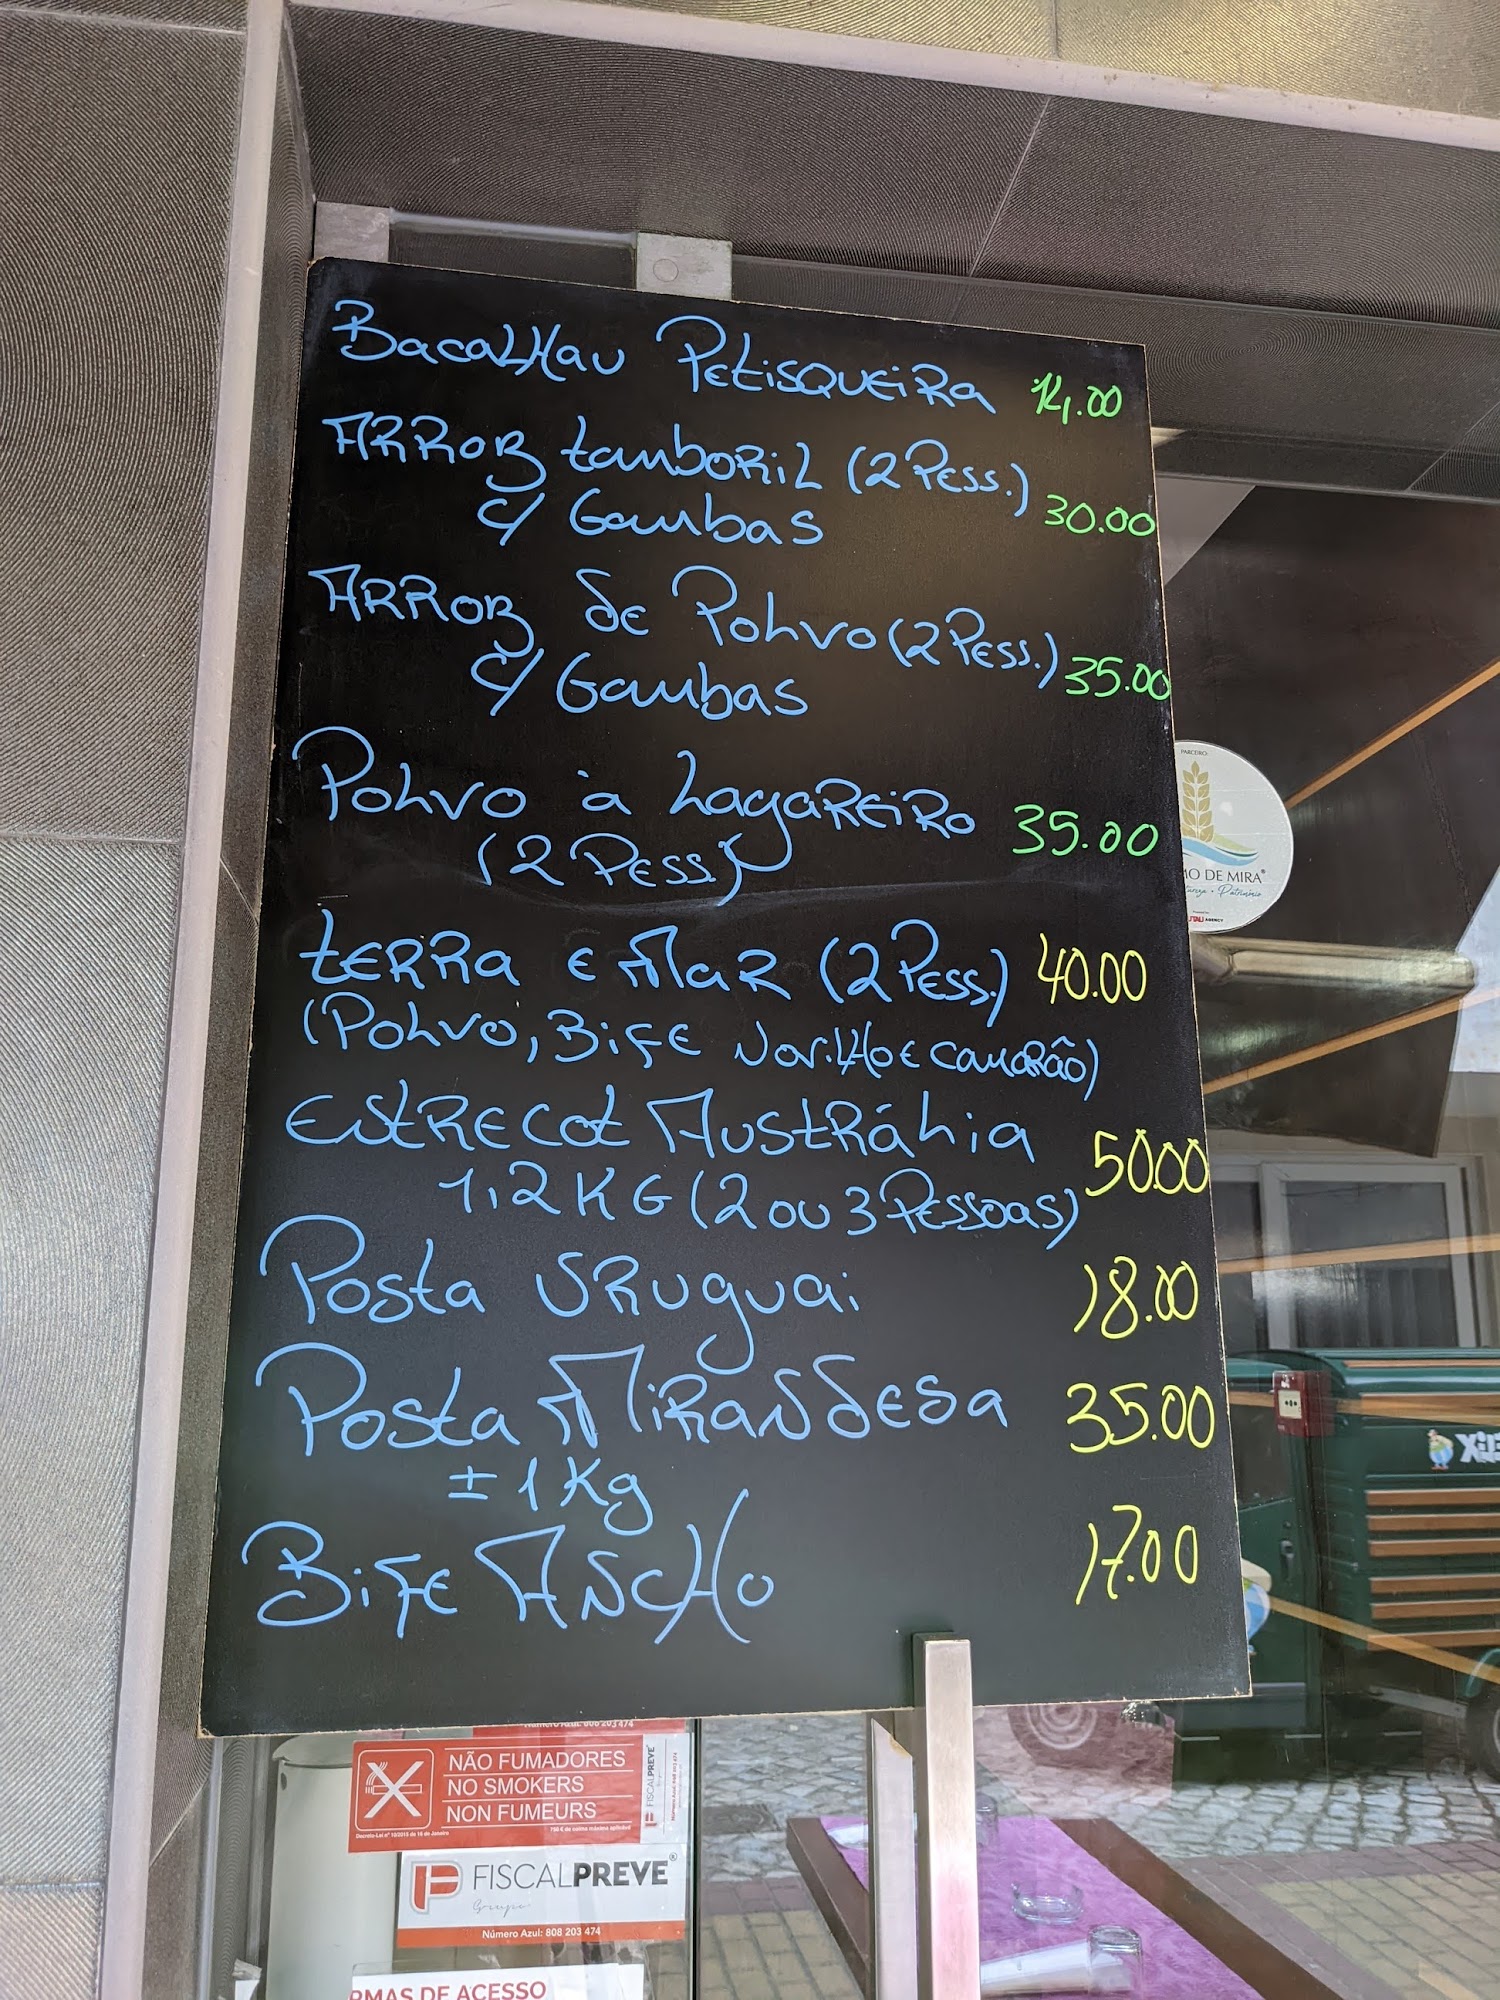 Bacalhau Petisqueira 14.00
Arroz tamboril (2 Pess.)
c/ Gambas 30.00
Arroz de Polvo (2 Pess.)
c/ Gambas 35.00
Polvo à Lagareiro 35.00
(2 Pess.)
terra e Mar (2 Pess.) 40.00
(Polvo, Bife Novilho e camarão)
Estrecot Austrália
1,2KG (2 ou 3 Pessoas) 50.00
Posta Uruguai 18.00
Posta Mirandesa 35.00
± 1Kg
Bife Ancho 17.00
PARCEIRO
MO DE MIRA®
Património
AGENCY
Xi
Número Azul: 808 203 474
NÃO FUMADORES
NO SMOKERS
NON FUMEURS
FISCALPREVE
FISCALPREVE®
Grupo
Número Azul: 808 203 474
RMAS DE ACESSO